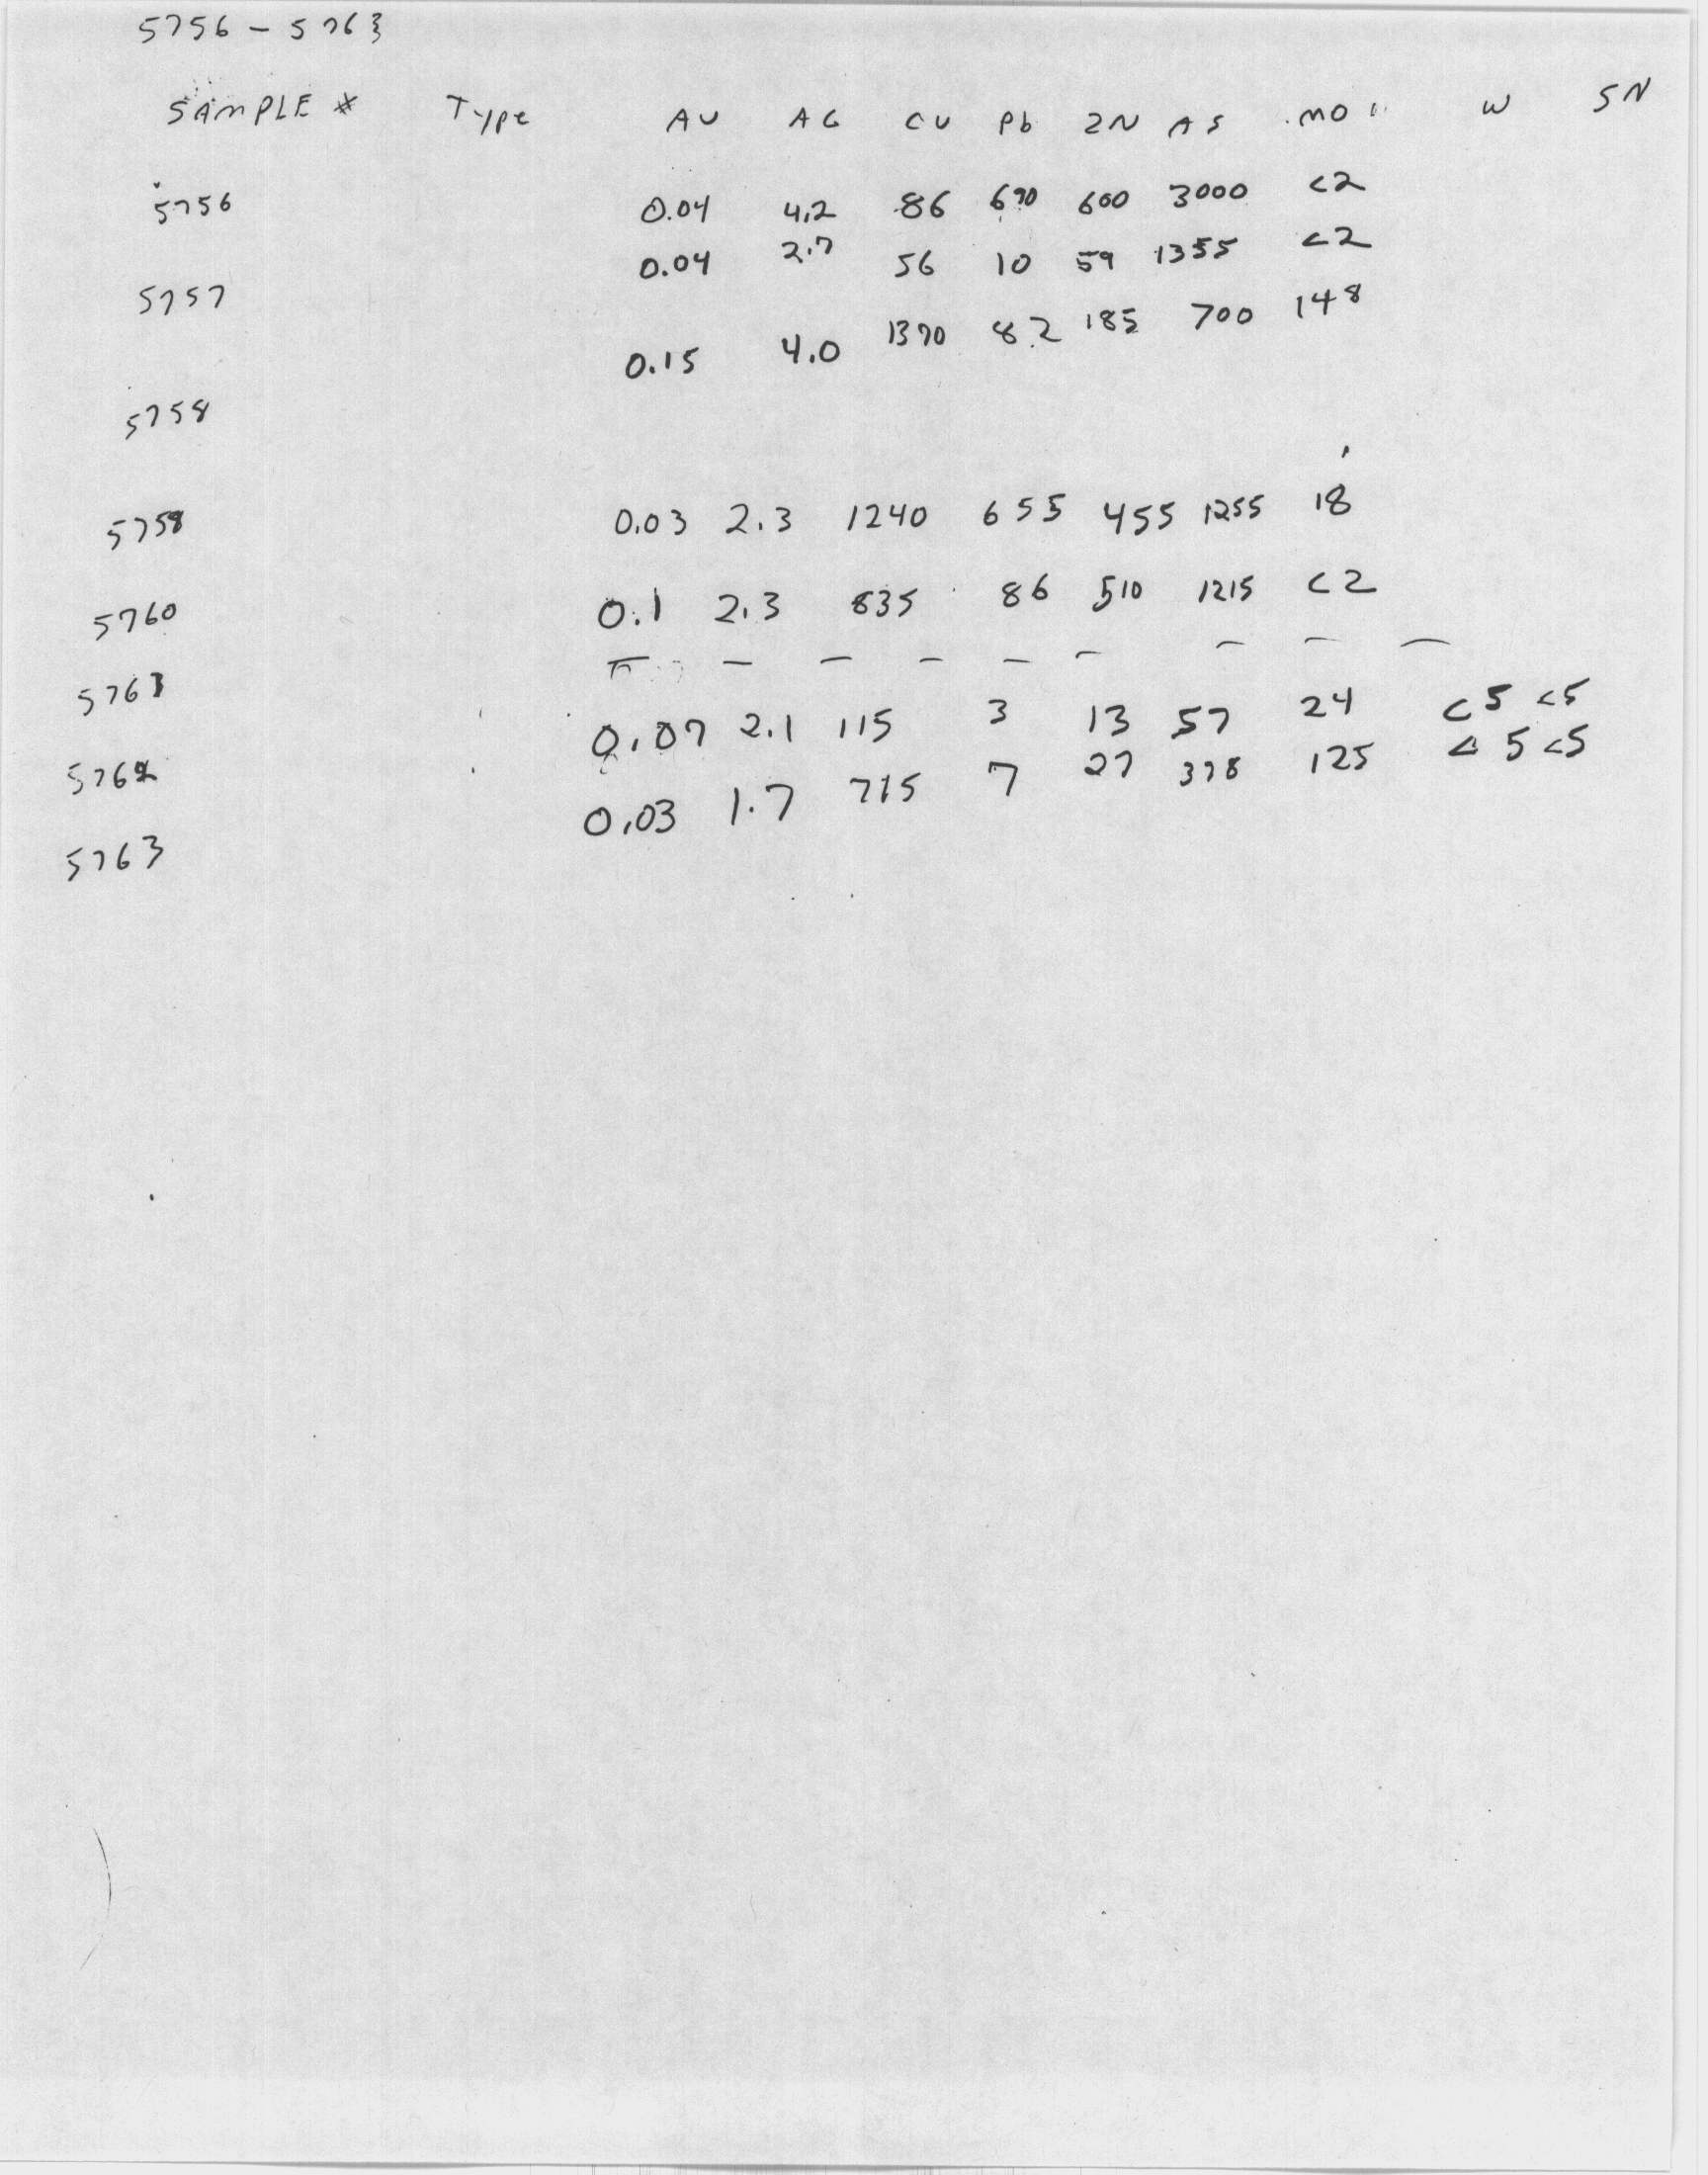 5756 - 5763
SAMPLE # Type AU AG CU Pb ZN AS MO W SN
5756 0.04 4.2 86 690 600 3000 <2
0.04 2.7 56 10 59 1355 <2
5757
0.15 4.0 1370 82 185 700 148
5758
5758 0.03 2.3 1240 655 455 1255 18
5760 0.1 2.3 835 86 510 1215 <2
— — — — — — — — —
5761
0.07 2.1 115 3 13 57 24 <5 <5
5762
0.03 1.7 715 7 27 378 125 <5 <5
5763